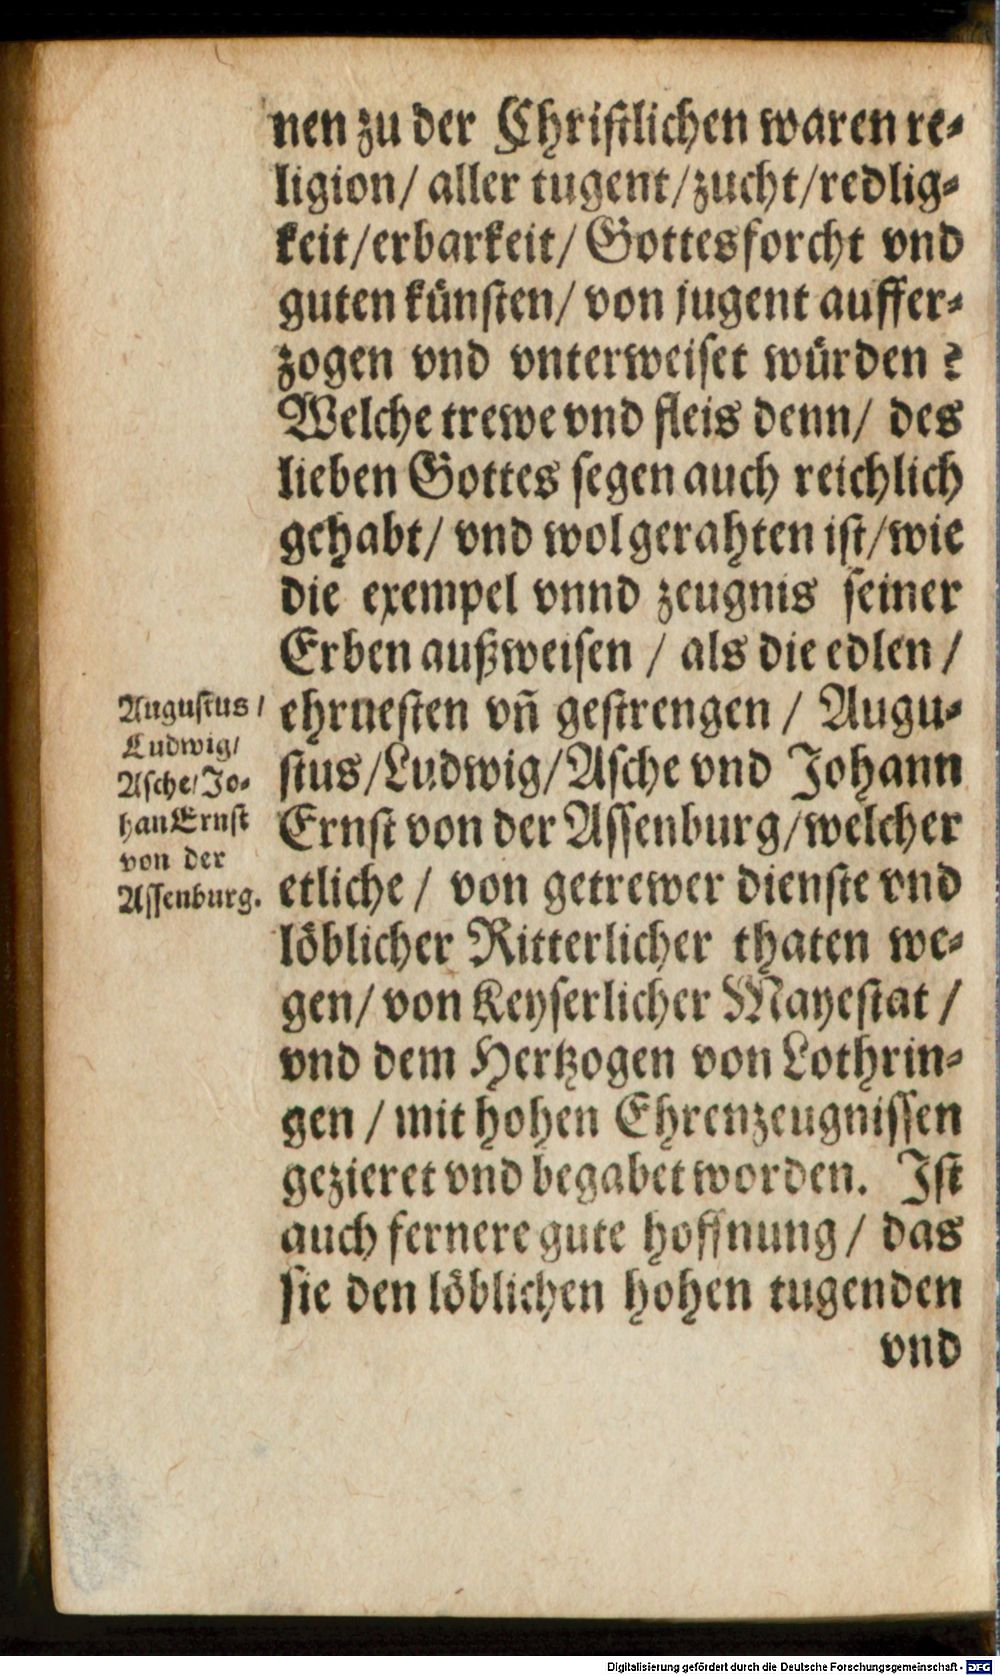 nen zu der Chriſtlichen waren re⸗
ligion/ aller tugent/zucht/redlig⸗
keit/erbarkeit/ Gottesforcht vnd
guten künſten/ von jugent auffer⸗
zogen vnd vnterweiſet würden ?
Welche trewe vnd fleis denn/ des
lieben Gottes ſegen auch reichlich
gehabt/ vnd wol gerahten iſt/wie
die exempel vnnd zeugnis ſeiner
Erben außweiſen / als die edlen /
ehrneſten vñ geſtrengen / Augu⸗
ſtus/Ludwig/Aſche vnd Johann
Ernſt von der Aſſenburg/welcher
etliche / von getrewer dienſte vnd
löblicher Ritterlicher thaten we⸗
gen/ von Keyſerlicher Mayeſtat /
vnd dem Hertzogen von Lothrin⸗
gen / mit hohen Ehrenzeugniſſen
gezieret vnd begabet worden. Iſt
auch fernere gute hoffnung / das
ſie den löblichen hohen tugenden
vnd
Auguſtus /
Ludwig/
Aſche/Jo⸗
han Ernſt
von der
Aſſenburg.
Digitalisierung gefördert durch die Deutsche Forschungsgemeinschaft - DFG